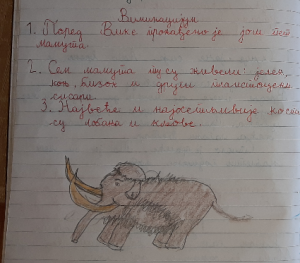 Виминацијум
1. Поред Вике пронађено је још пет
мамута.
2. Сем мамута ту су живели јелен,
коњ, бизон и други
сисари.
3. Највеће и најосетљивије кости
су лобања и кљове.